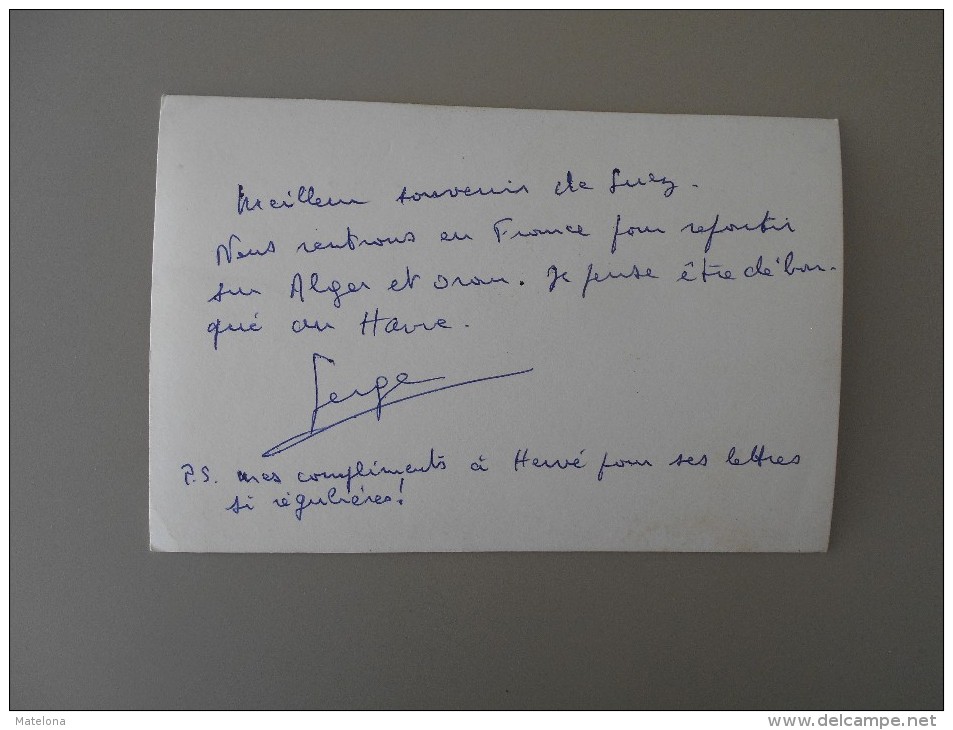 Meilleur souvenir de Suez.
Nous rentrons en France pour repartir
sur Alger et Oran. Je pense être débar-
qué au Havre.
Serge
P.S. mes compliments à Hervé pour ses lettres
si régulières!
Matelona
www.delcampe.net